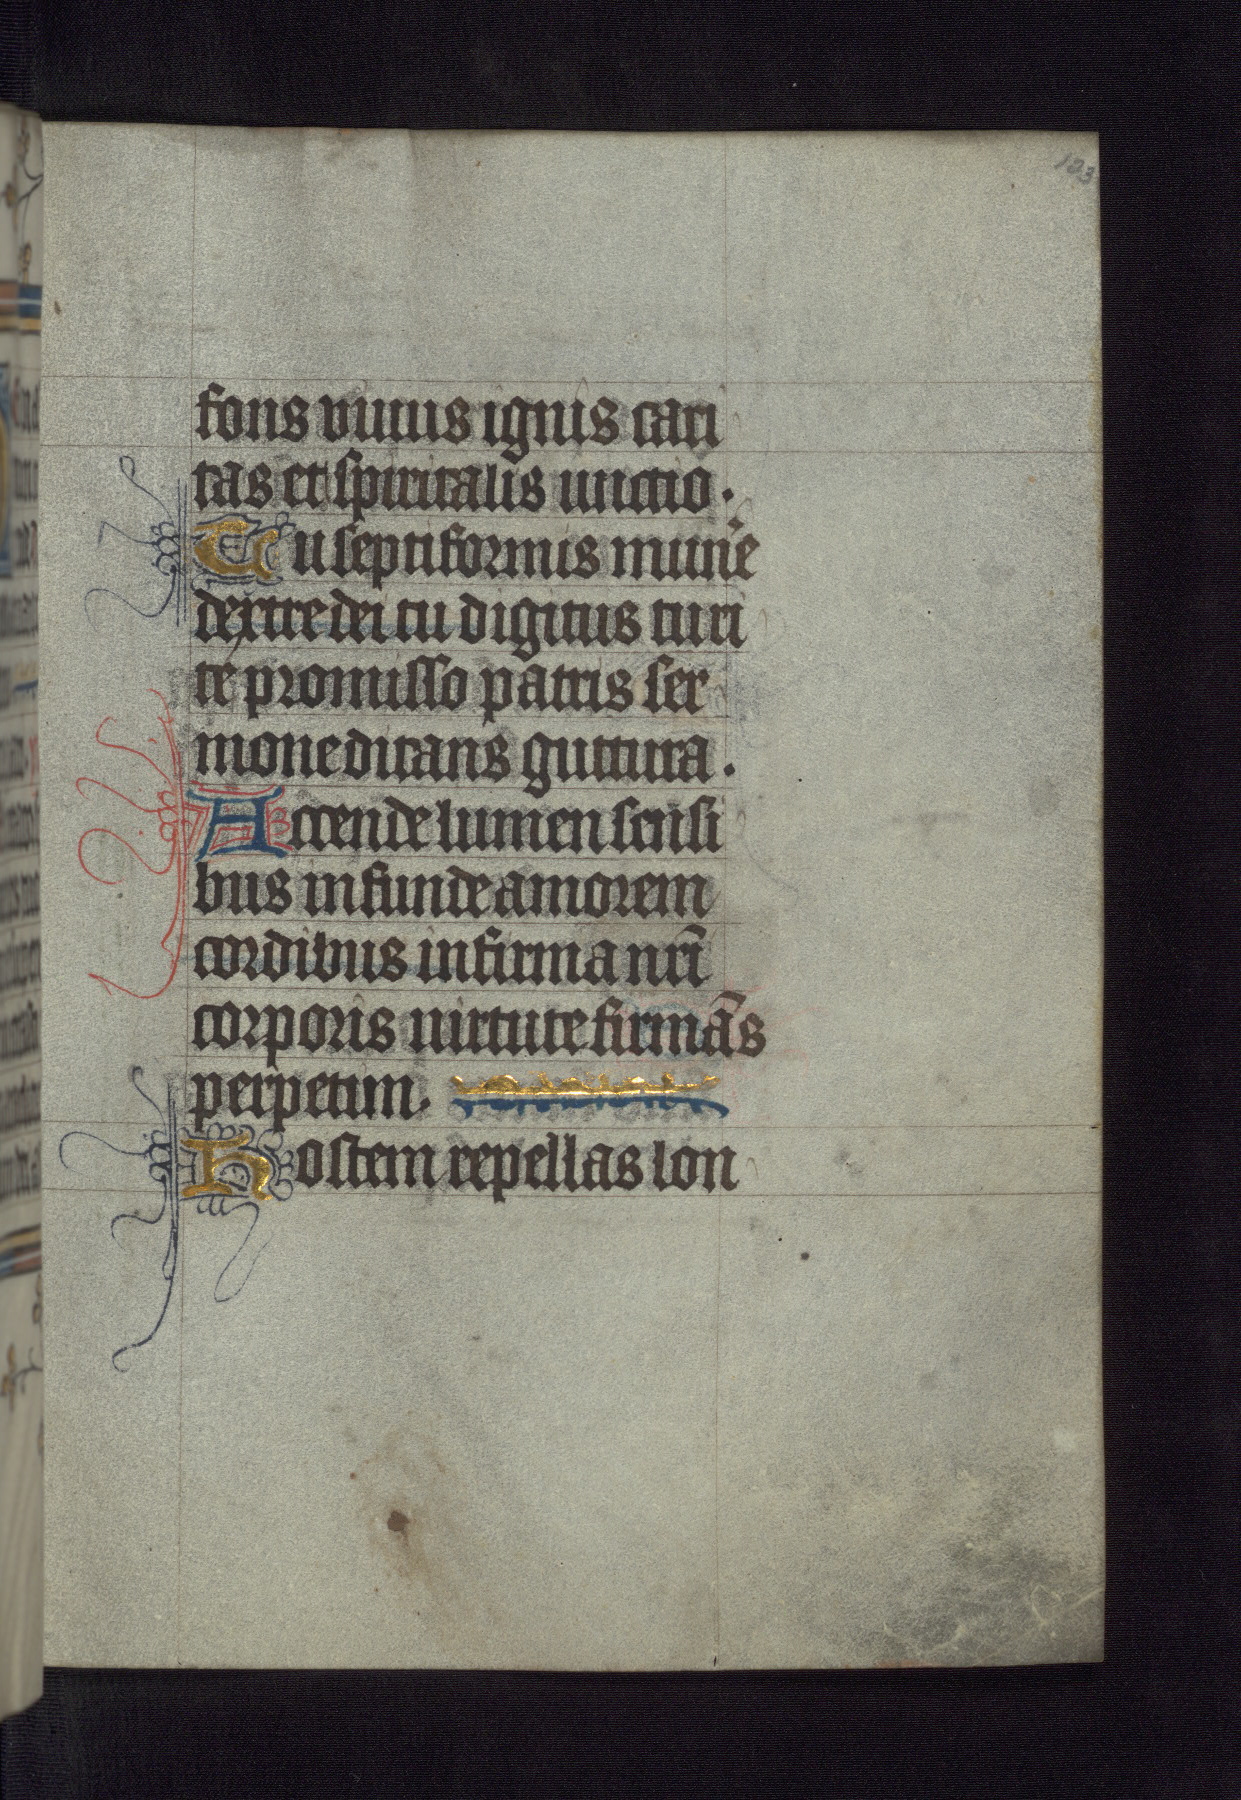 123
fons viuus ignis cari
tas et spiritalis unctio.
Tu septiformis mune
dextre dei tu digitus tu ri
te promisso patris ser
mone ditans guttura.
Accende lumen sensi
bus infunde amorem
cordibus infirma nr̄i
corporis uirtute firmās
perpetim.
Hostem repellas lon